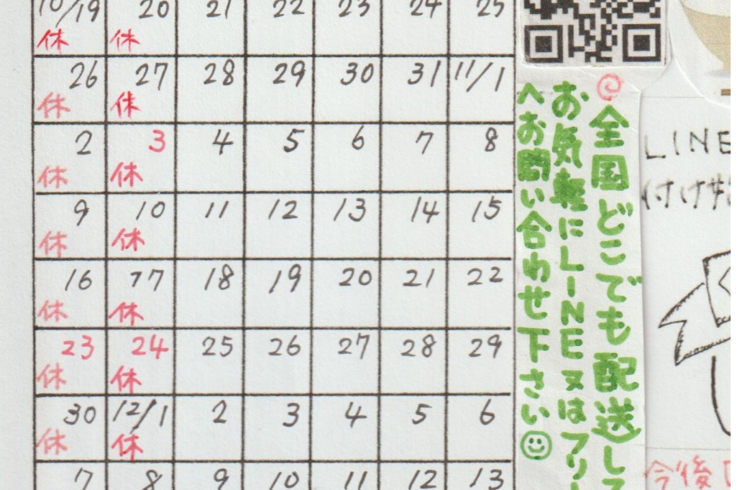 10/19 20 21 22 23 24 25
休 休
26 27 28 29 30 31 11/1
休 休
2 3 4 5 6 7 8
休 休
9 10 11 12 13 14 15
休 休
16 17 18 19 20 21 22
休 休
23 24 25 26 27 28 29
休 休
30 12/1 2 3 4 5 6
休 休
7 8 9 10 11 12 13
全国どこでも配送して
お気軽にLINE又はフリ
へお問い合わせ下さい
LINE
付け
今後